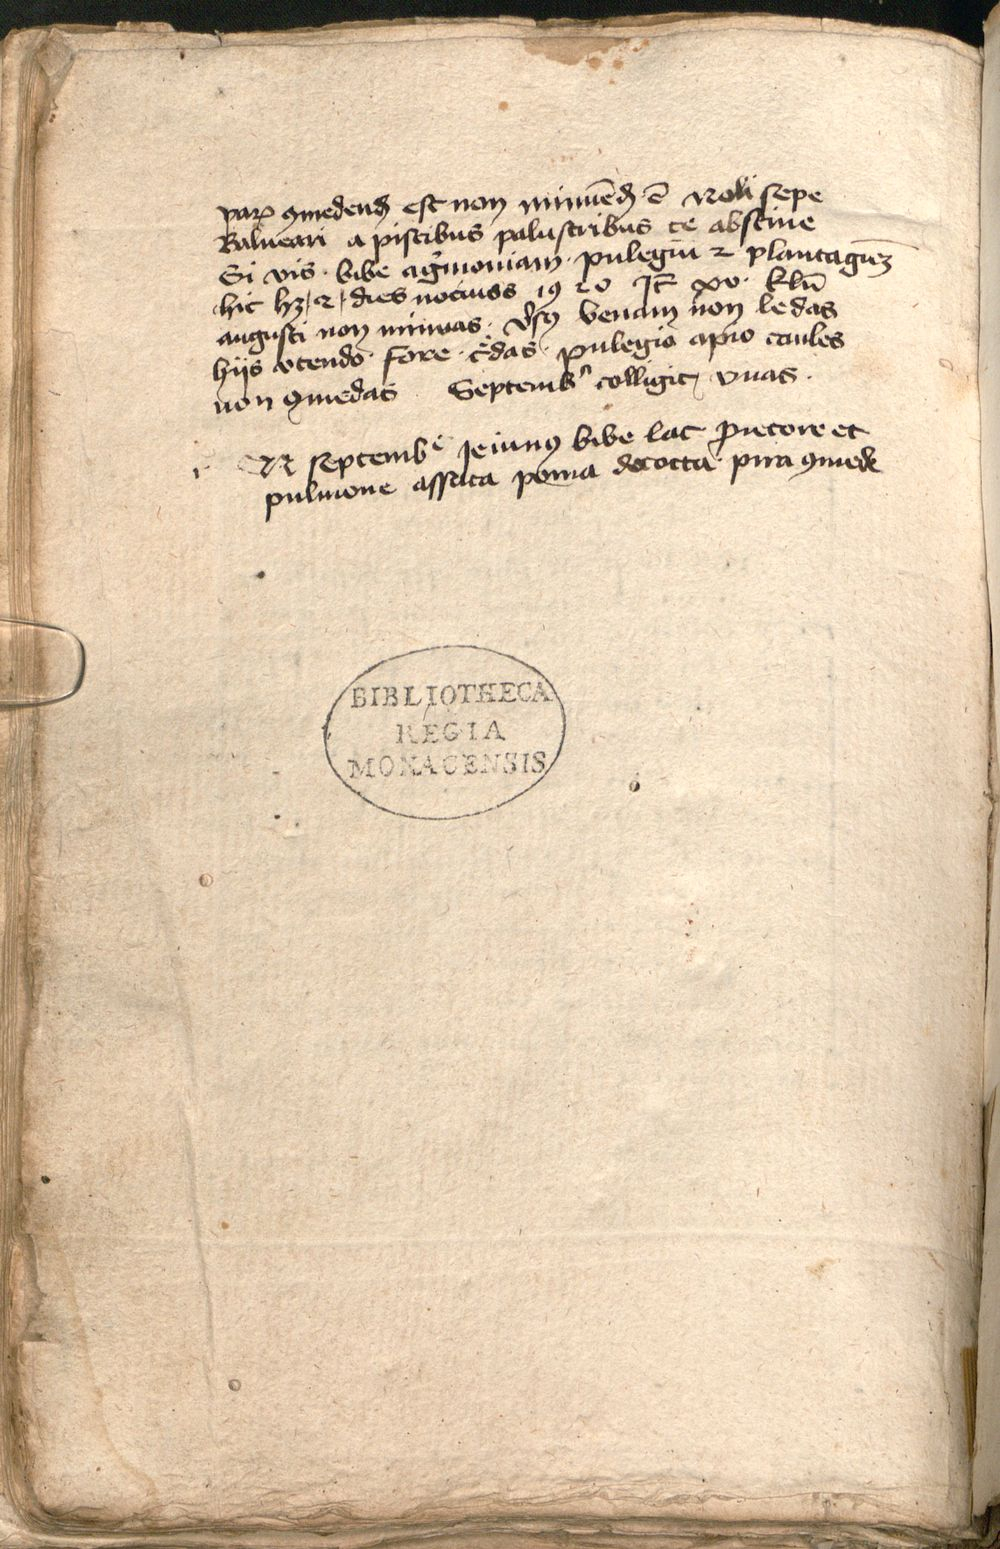 parū ꝯmedendū est non minuēdū ē Noli sepe
Balneari a piscibus palustribus te abstine
Si vis · bibe agͥmoniam · pulegiū ⁊ plantaginē
hic hꝫ / 2 / dies nociuos 19 20 Itē xv · kln̄
augusti non minuas · vͤsꝯ venam non ledas
hijs vtendo fore · cͤdas · pulegio apio caules
non ꝯmedas · Septembͬ colligit vuas ·
IN septembͤ Ieiunꝯ bibe lac pro pectore et
pulmone assata poma decocta pira ꝯmede
BIBLIOTHECA
REGIA
MONACENSIS